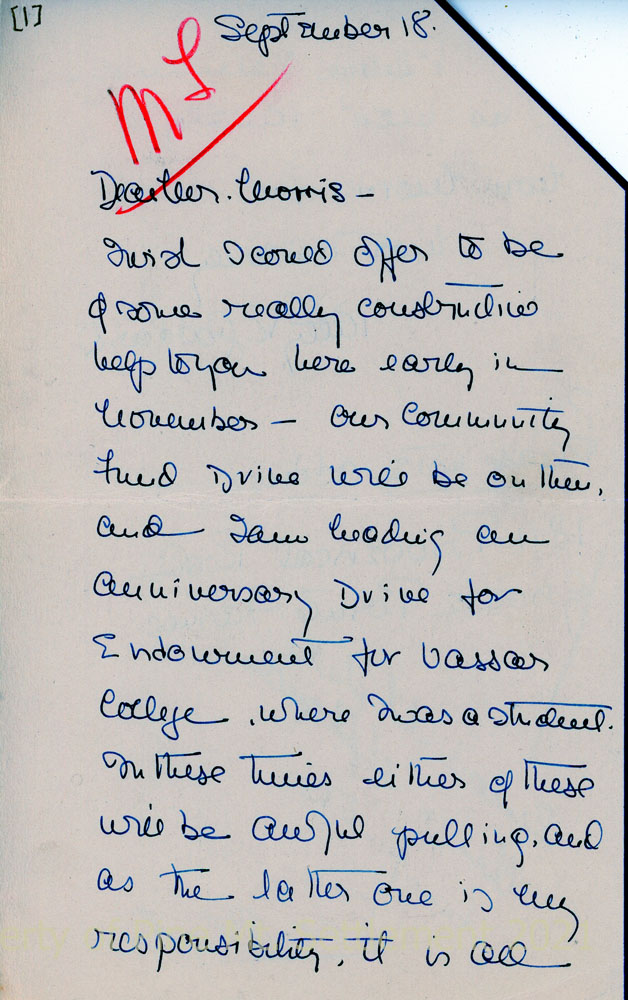 [1]
September 18.
M L
Dear Mr. Morris –
I wish I could offer to be
of some really constructive
help to you here early in
November – our Community
Fund Drive will be on then,
and I am heading an
anniversary Drive for
Endowment for Vassar
College, where I was a student.
In these times either of these
will be awful pulling, and
as the latter one is my
responsibility, it is all